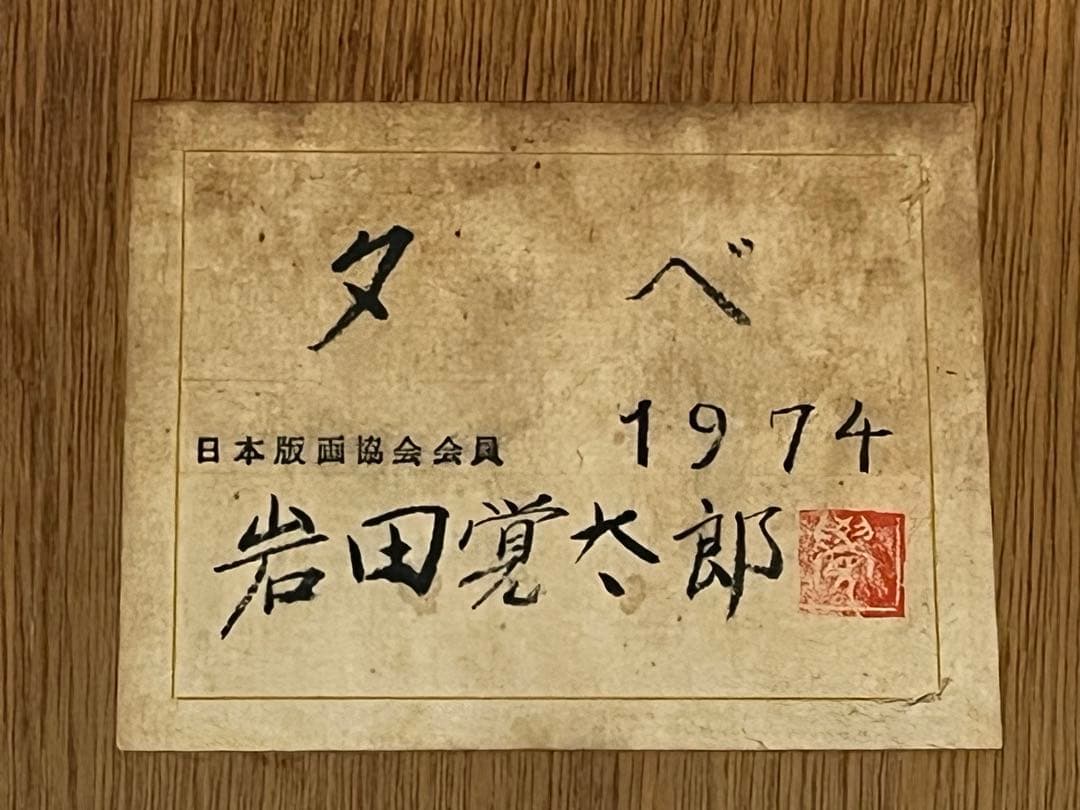 夕べ
1974
日本版画協会会員
岩田覚太郎